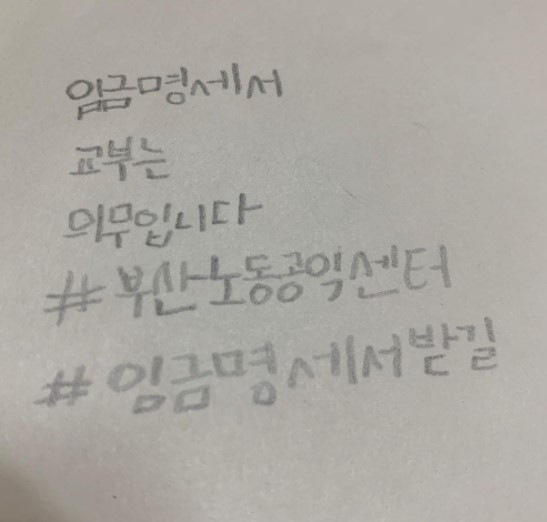 임금명세서
교부는
의무입니다
#부산노동공익센터
#임금명세서받길